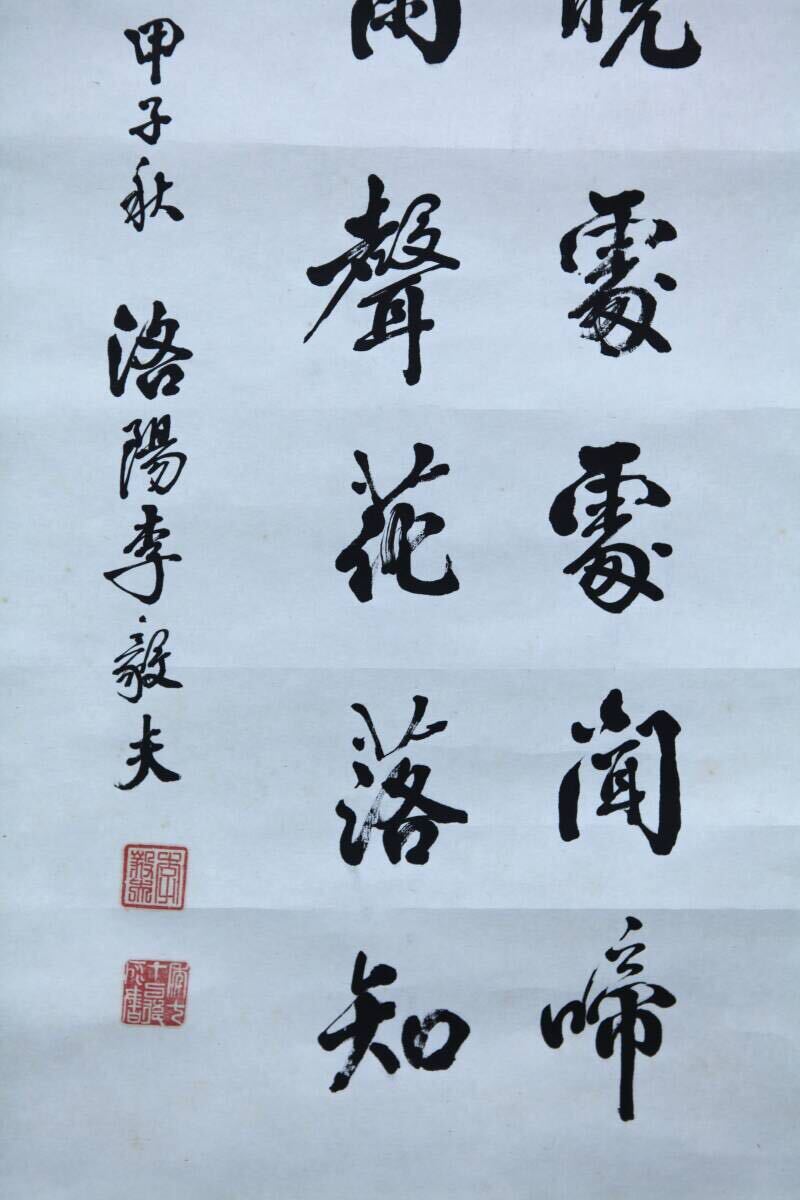 曉處處聞啼
雨聲花落知
甲子秋 洛陽李毅夫
李毅夫